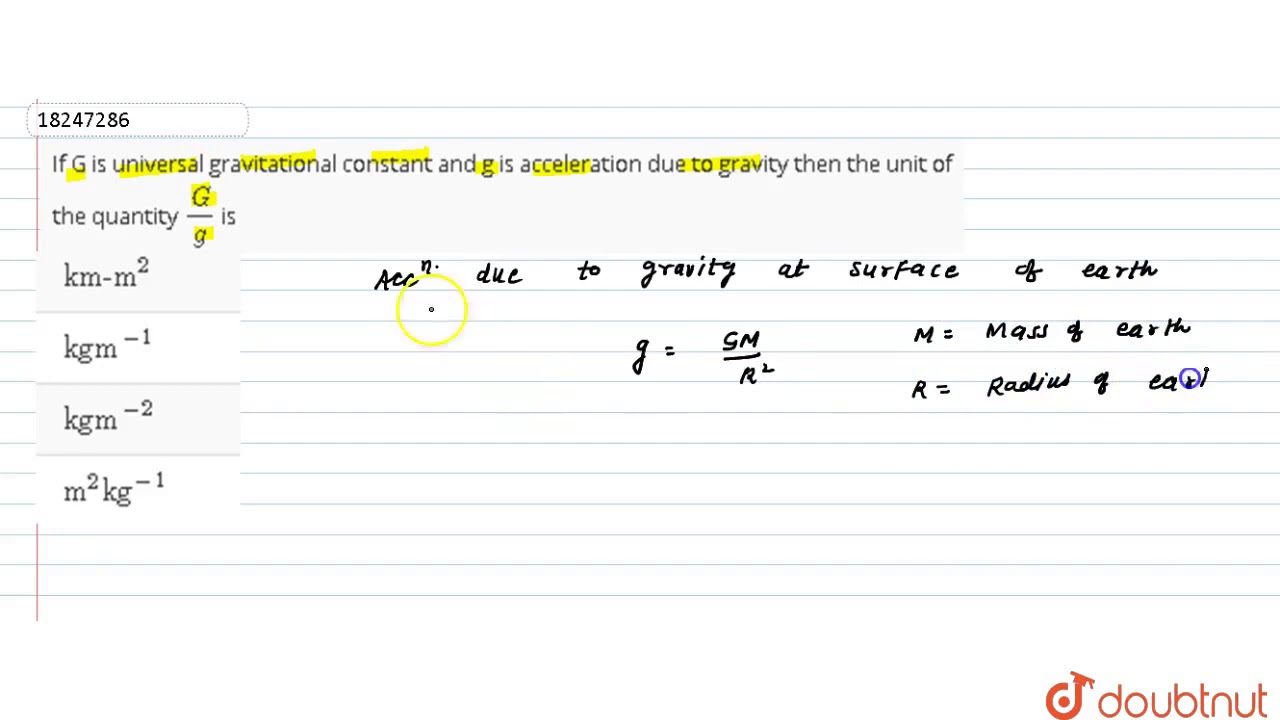 18247286
If G is universal gravitational constant and g is acceleration due to gravity then the unit of
the quantity G/g is
km-m²
kgm⁻¹
kgm⁻²
m²kg⁻¹
Accⁿ. due to gravity at surface of earth
g = GM/R²
M = Mass of earth
R = Radius of eart
doubtnut